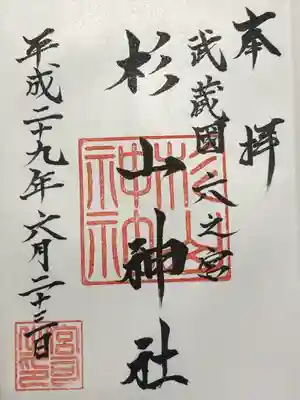 奉拝
武蔵國六之宮
杉山神社
平成二十九年六月二十三日
杉山神社